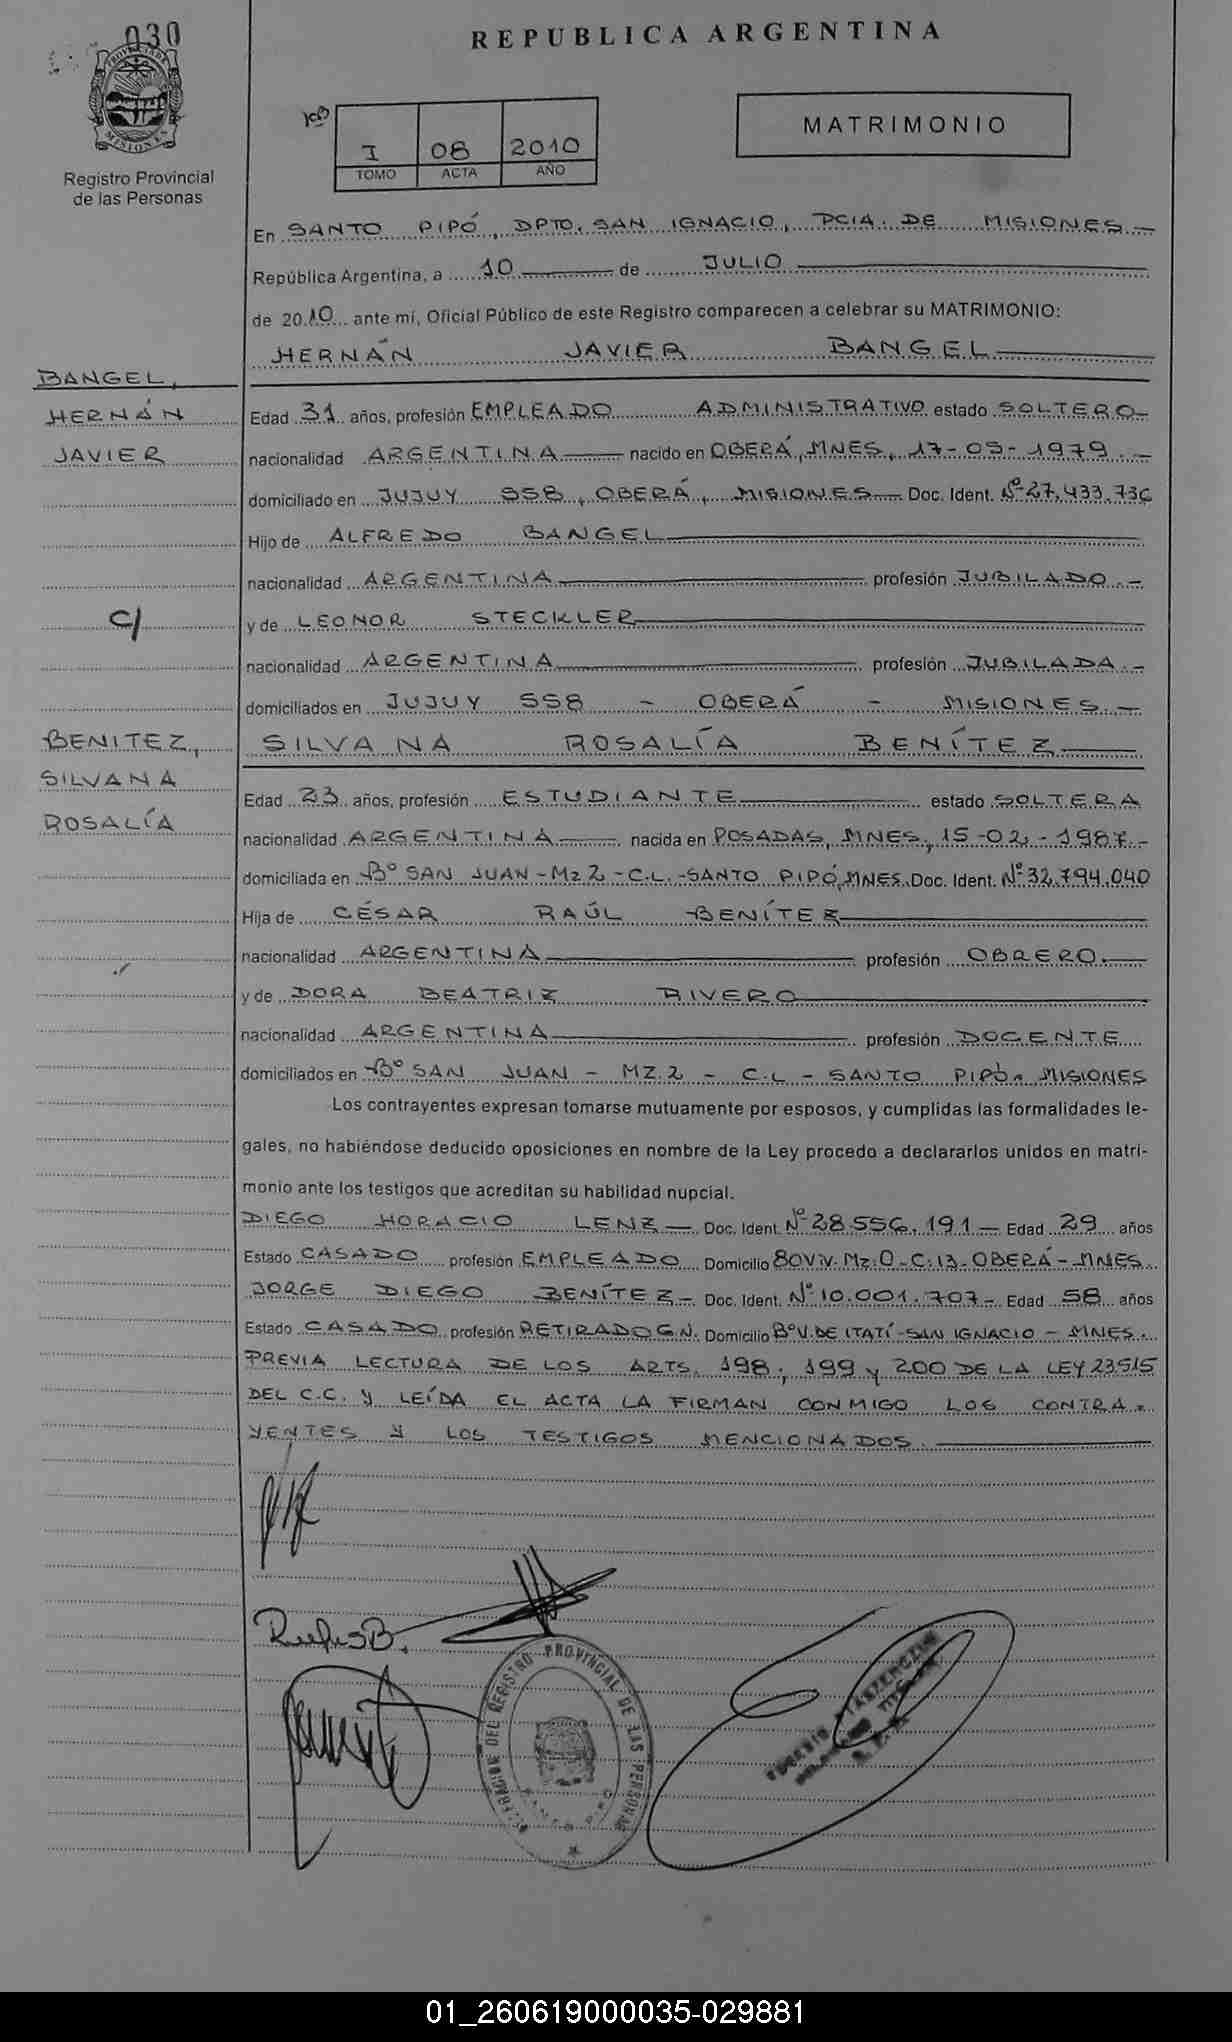 030
REPUBLICA ARGENTINA
MISIONES
Registro Provincial
de las Personas
I 08 2010
TOMO ACTA AÑO
MATRIMONIO
En SANTO PIPÓ, DPTO. SAN IGNACIO, PCIA. DE MISIONES.-
República Argentina, a 10 de JULIO
de 2010 ante mí, Oficial Público de este Registro comparecen a celebrar su MATRIMONIO:
HERNÁN JAVIER BANGEL
BANGEL,
HERNÁN
JAVIER
Edad 31 años, profesión EMPLEADO ADMINISTRATIVO estado SOLTERO-
nacionalidad ARGENTINA nacido en OBERÁ, MNES, 17-09-1979.-
domiciliado en JUJUY 558, OBERÁ, MISIONES Doc. Ident. Nº27.433.736
Hijo de ALFREDO BANGEL
nacionalidad ARGENTINA profesión JUBILADO.-
C/
y de LEONOR STECKLER
nacionalidad ARGENTINA profesión JUBILADA.-
domiciliados en JUJUY 558 - OBERÁ - MISIONES.-
BENITEZ,
SILVANA
ROSALÍA
SILVANA ROSALÍA BENÍTEZ
Edad 23 años, profesión ESTUDIANTE estado SOLTERA
nacionalidad ARGENTINA nacida en POSADAS, MNES, 15-02-1987.-
domiciliada en Bº SAN JUAN-Mz 2-C.L.-SANTO PIPÓ, MNES. Doc. Ident. Nº32.794.040
Hija de CÉSAR RAÚL BENÍTEZ
nacionalidad ARGENTINA profesión OBRERO.
y de DORA BEATRIZ RIVERO
nacionalidad ARGENTINA profesión DOCENTE
domiciliados en Bº SAN JUAN - MZ.2 - C.L - SANTO PIPÓ, MISIONES
Los contrayentes expresan tomarse mutuamente por esposos, y cumplidas las formalidades le-
gales, no habiéndose deducido oposiciones en nombre de la Ley procedo a declararlos unidos en matri-
monio ante los testigos que acreditan su habilidad nupcial.
DIEGO HORACIO LENZ Doc. Ident. Nº 28.556.191 Edad 29 años
Estado CASADO profesión EMPLEADO Domicilio 80VIV. Mz:O-C:13-OBERÁ-MNES.
JORGE DIEGO BENÍTEZ- Doc. Ident. Nº 10.001.707- Edad 58 años
Estado CASADO profesión RETIRADO G.N. Domicilio BºV. DE ITATÍ-SAN IGNACIO-MNES.
PREVIA LECTURA DE LOS ARTS. 198; 199 y 200 DE LA LEY 23515
DEL C.C. Y LEÍDA EL ACTA LA FIRMAN CONMIGO LOS CONTRA-
YENTES Y LOS TESTIGOS MENCIONADOS.
DEL REGISTRO PROVINCIAL DE LAS PERSONAS
01_260619000035-029881